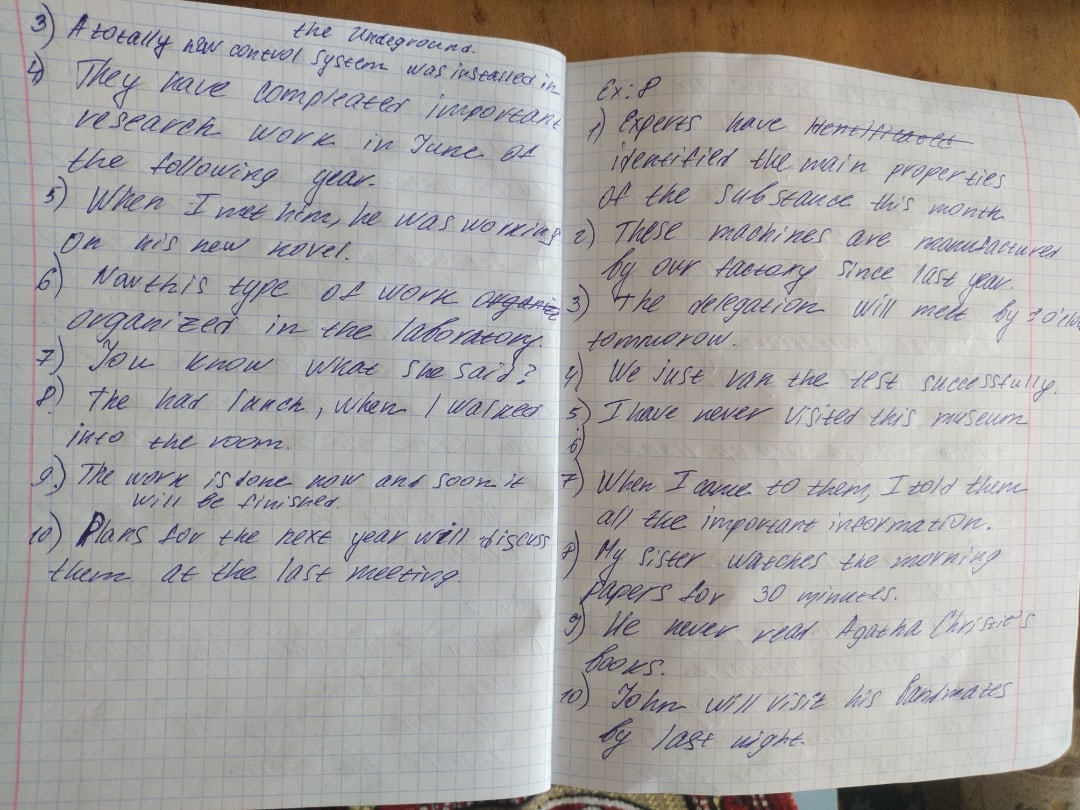 3) A totally new control system was installed in
the Undeground.
4) They have compleated important
research work in June of
the following year.
5) When I met him, he was working
on his new novel.
6) Now this type of work
organized in the laboratory.
7) You know what she said?
8) The had lunch, when I walked
into the room.
9) The work is done now and soon it
will be finished.
10) Plans for the next year will discuss
them at the last meeting
Ex: 8
1) Experts have
identified the main properties
of the substance this month
2) These machines are manufactured
by our factory since last year.
3) The delegation will melt by 3 o'clock
tommorow.
4) We just ran the test successfully.
5) I have never visited this museum
6)
7) When I came to them, I told them
all the important information.
8) My sister watches the morning
papers for 30 minutes.
9) He never read Agatha Christie's
books.
10) John will visit his
by last night.